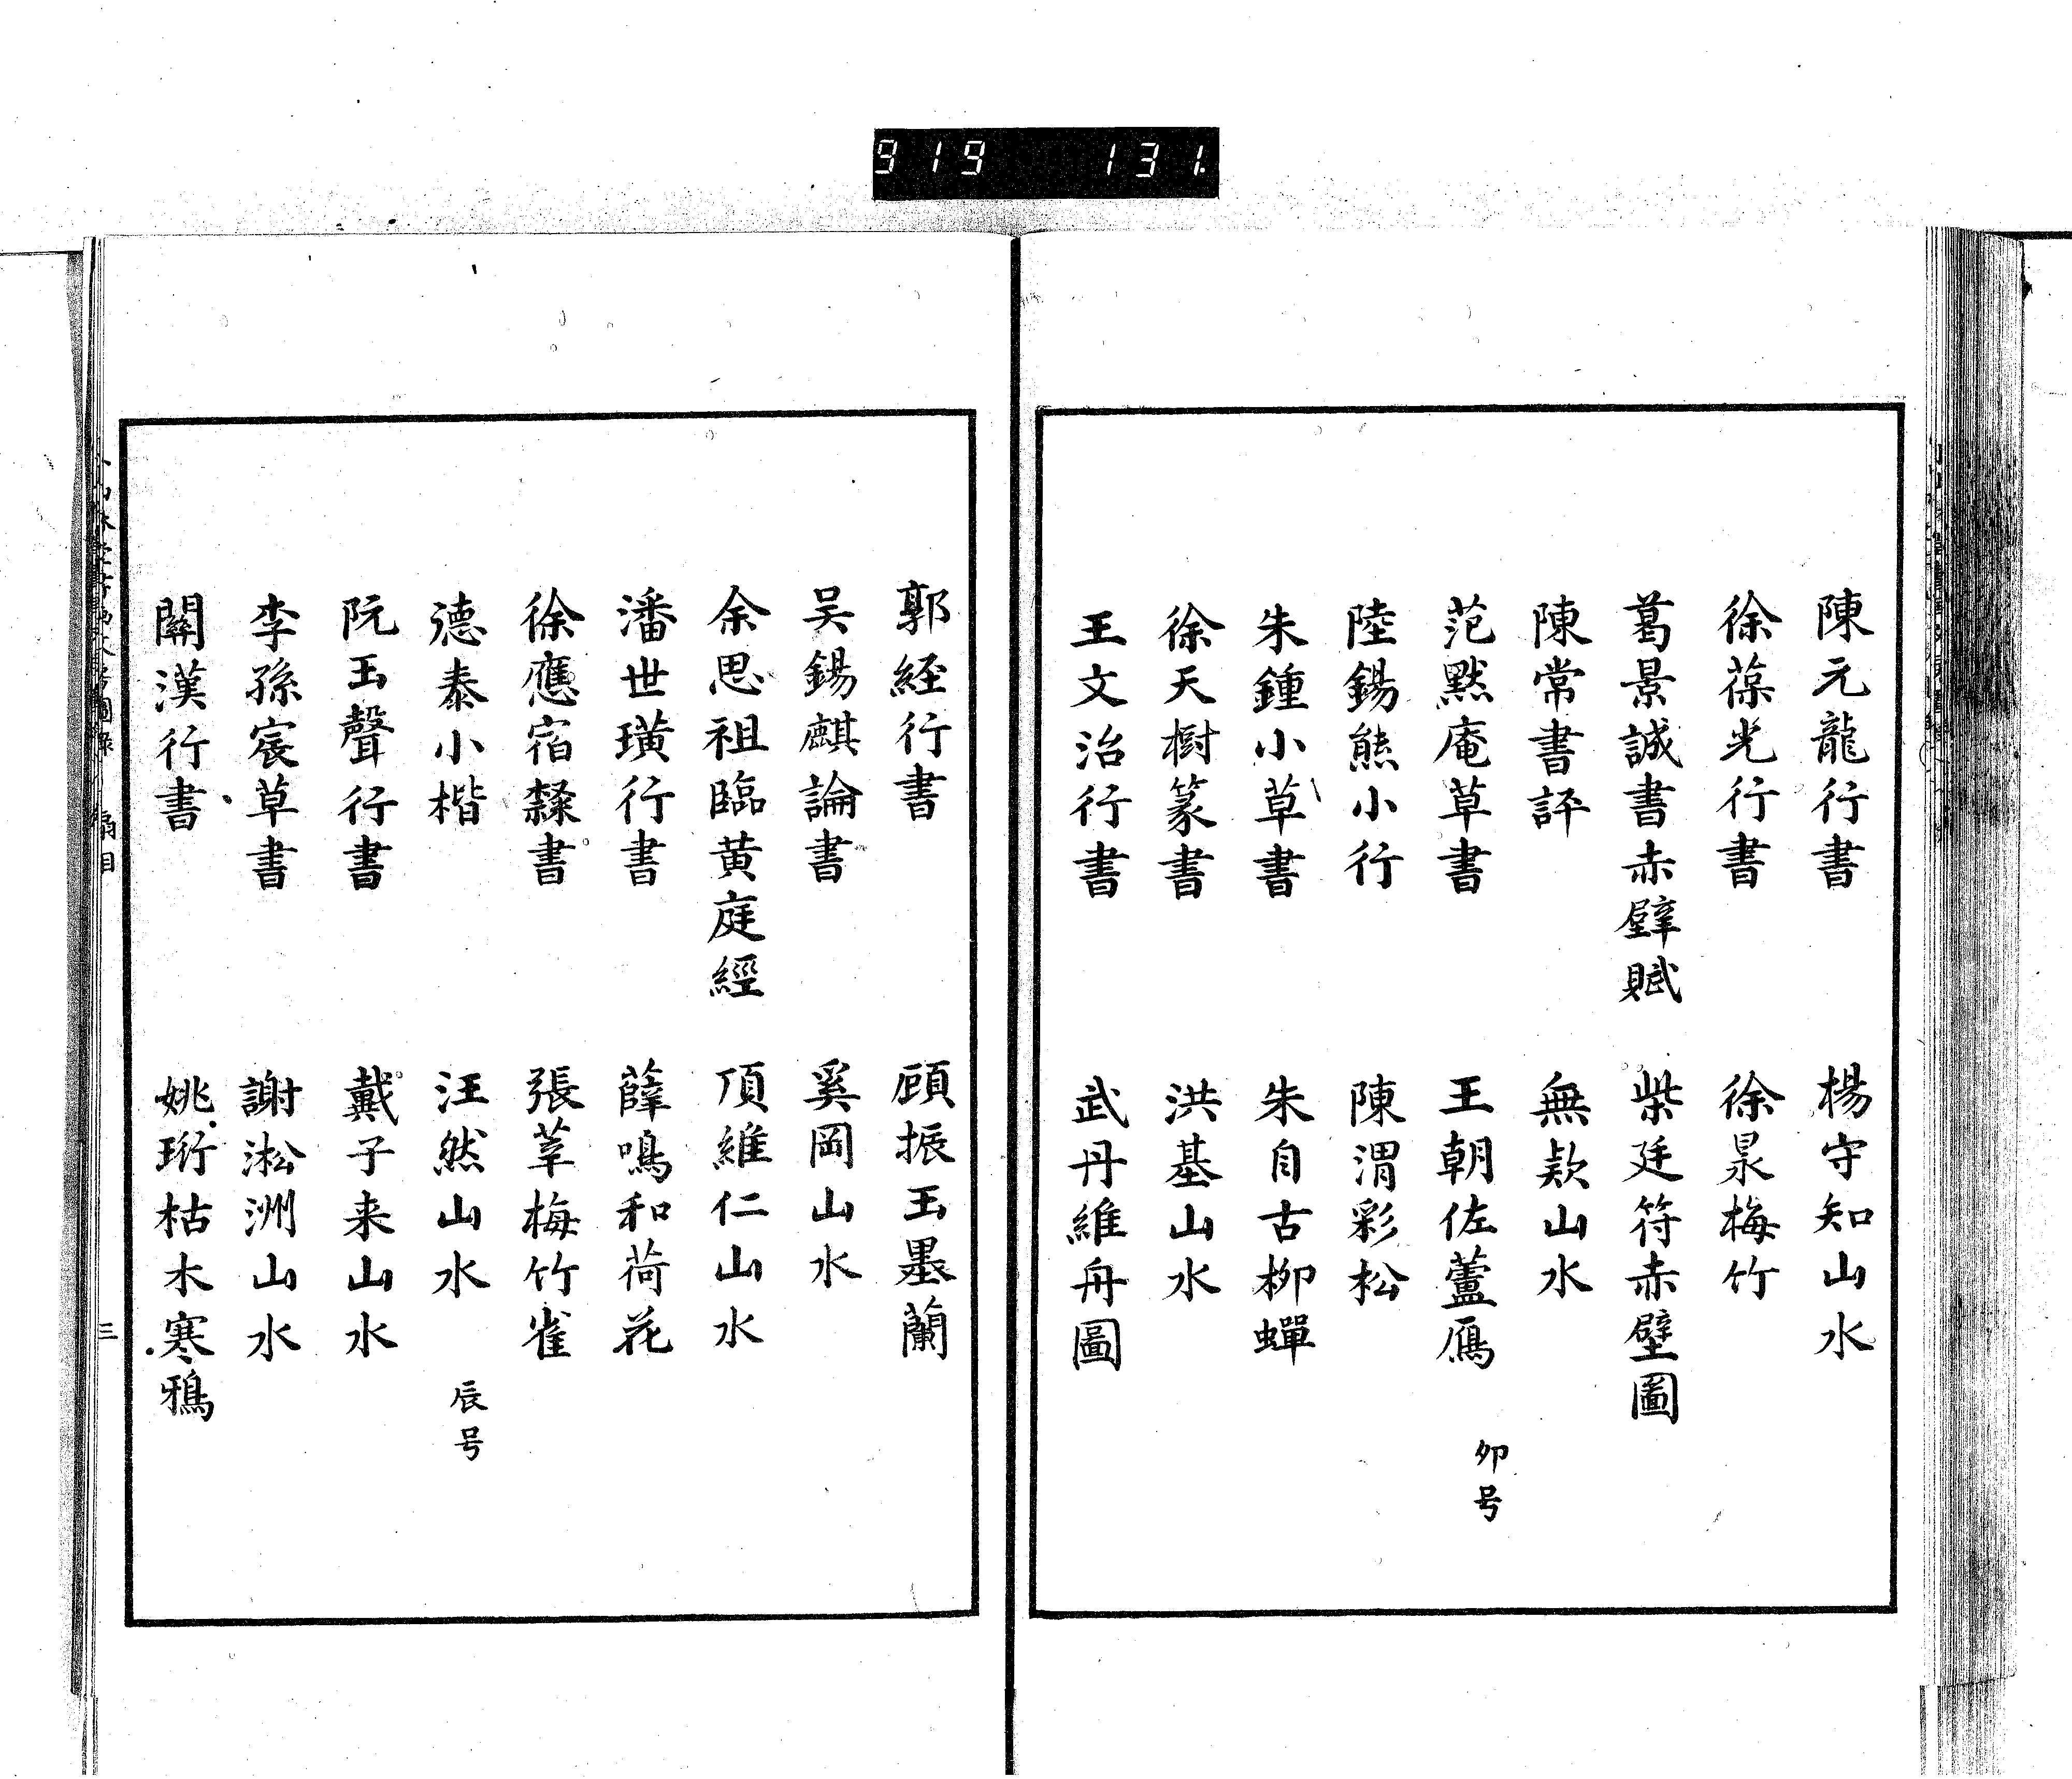 919 131.
陳元龍行書 楊守知山水
徐葆光行書 徐杲梅竹
葛景誠書赤壁賦 柴廷符赤壁圖
陳常書評 無款山水
范默庵草書 王朝佐蘆鴈 夘号
陸錫熊小行 陳渭彩松
朱鍾小草書 朱自古柳蟬
徐天樹篆書 洪基山水
王文治行書 武丹維舟圖
郭経行書 顧振玉墨蘭
吴錫麒論書 奚岡山水
余思祖臨黄庭經 項維仁山水
潘世璜行書 薛鳴和荷花
徐應宿隸書 張莘梅竹雀
德泰小楷 汪然山水 辰号
阮玉聲行書 戴子来山水
李孫宸草書 謝淞洲山水
關漢行書 姚珩枯木寒鴉
扇目 三